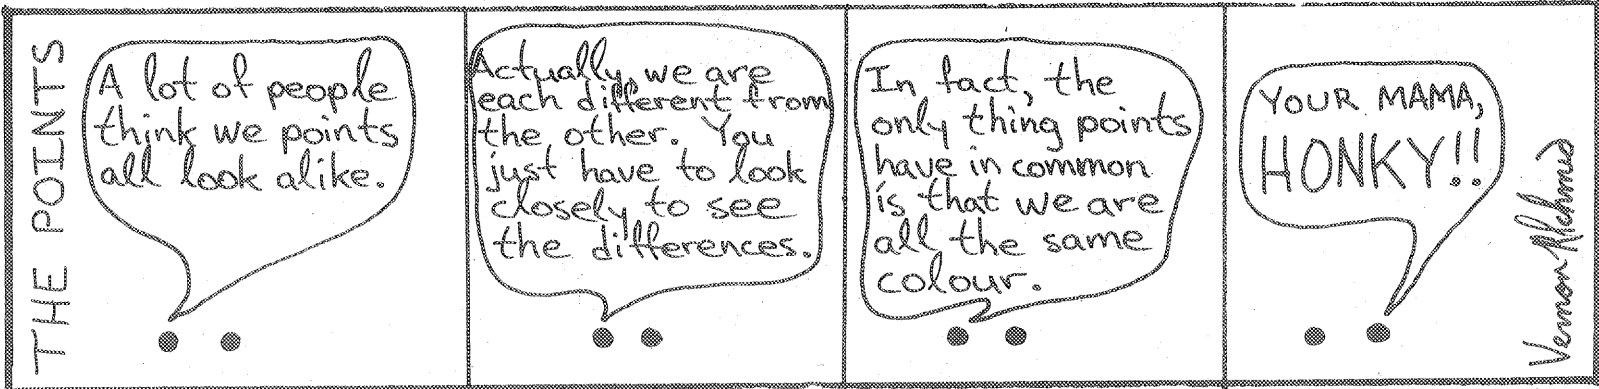 THE POINTS
A lot of people
think we points
all look alike.
Actually, we are
each different from
the other. You
just have to look
closely to see
the differences.
In fact, the
only thing points
have in common
is that we are
all the same
colour.
YOUR MAMA,
HONKY!!
Vernon